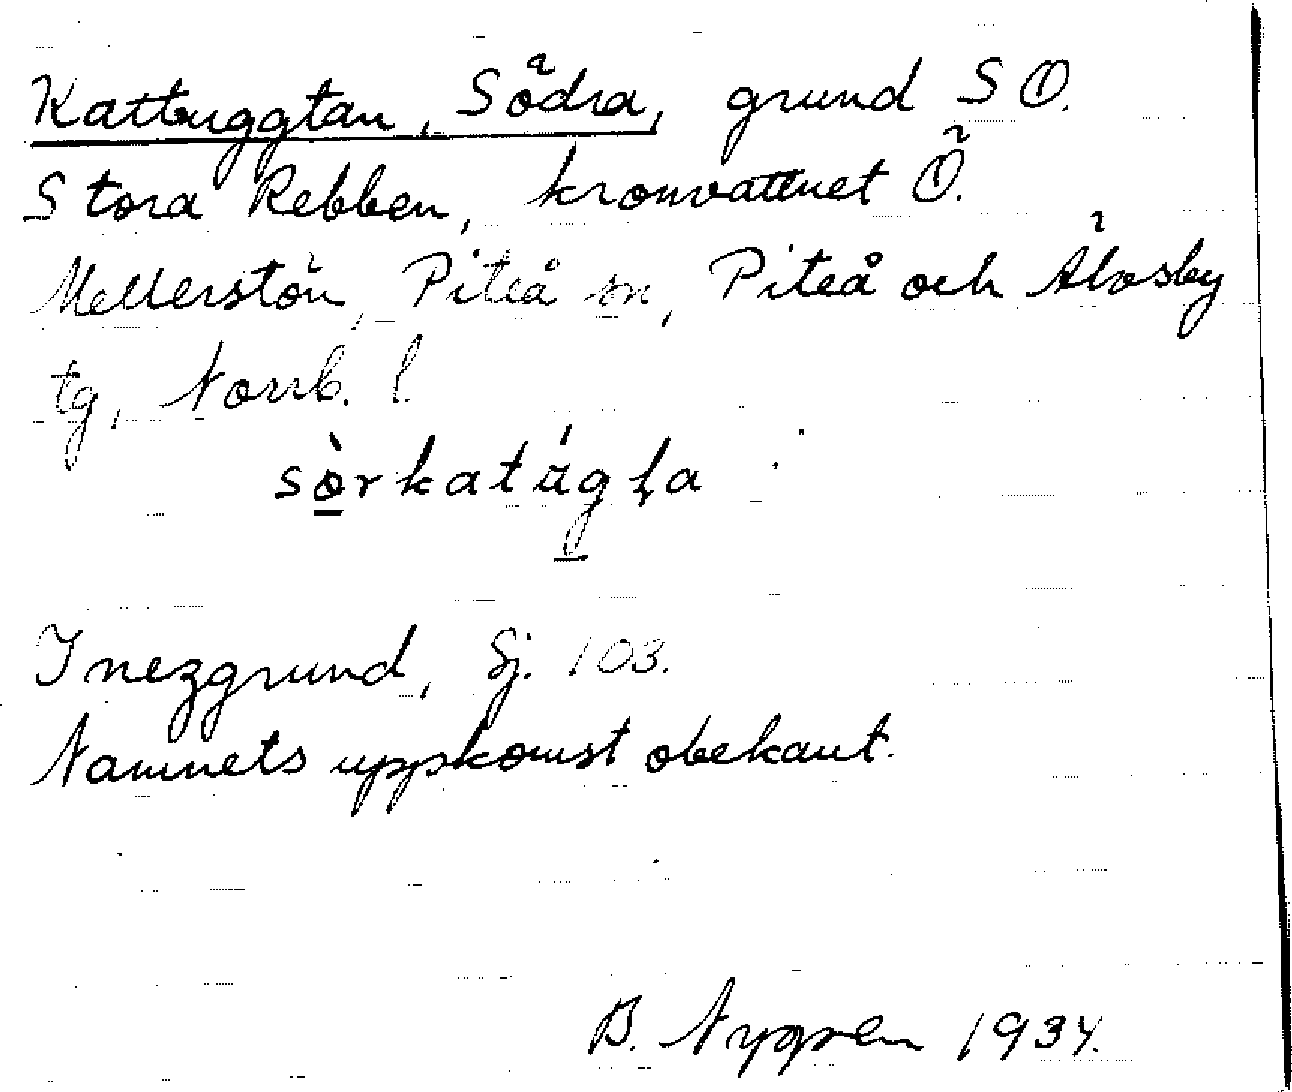 Kattuggtan, Södra, grund S O.
Stora Rebben, kronvattnet Ö.
Mellerstön, Piteå sn, Piteå och Älvsby
tg, Norrb. l.
Inezgrund, Sj. 103.
Namnets uppkomst obekant.
B. Nygren 1934.